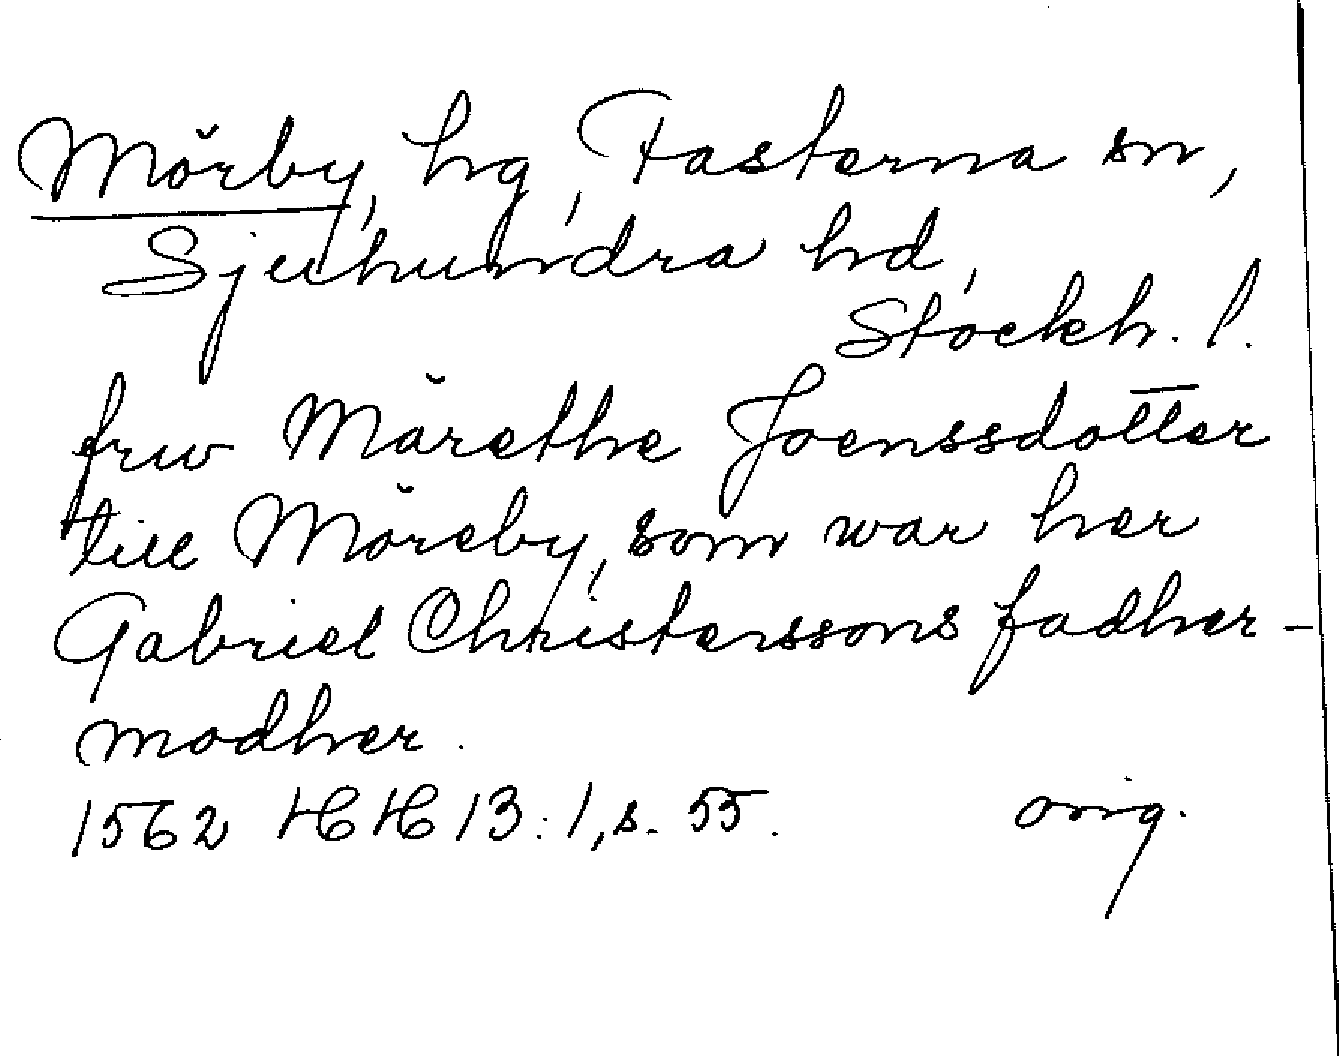 Mörby, hg, Fasterna sn,
Sjuhundra hd,
Stockh. l.
frw Märethe Joenssdotter
till Möreby, som war her
Gabriel Christerssons fadher-
modher.
1562 HH 13:1, s. 55. orig.